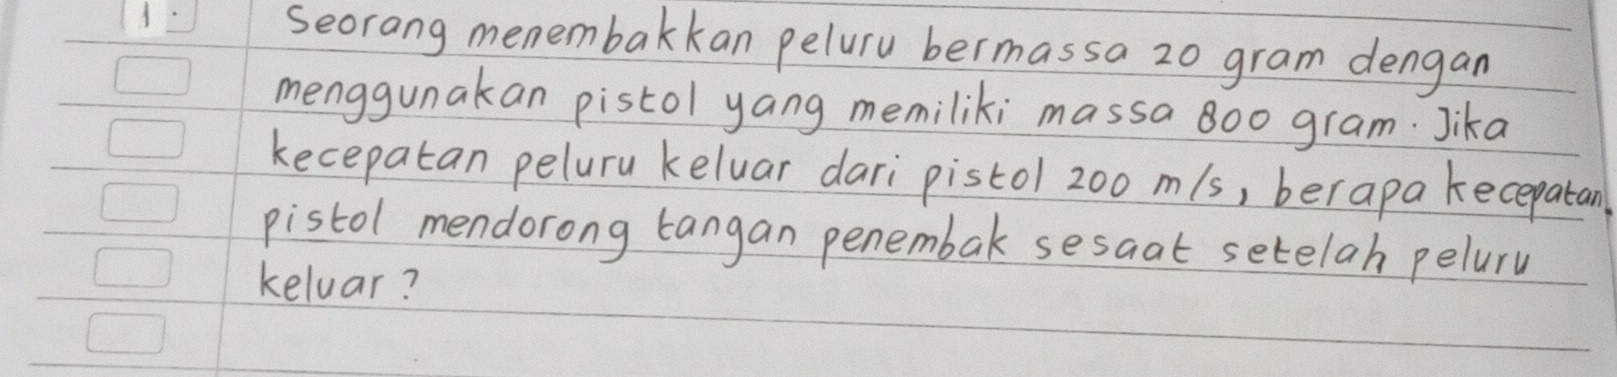 1. Seorang menembakkan peluru bermassa 20 gram dengan
menggunakan pistol yang memiliki massa 800 gram. Jika
kecepatan peluru keluar dari pistol 200 m/s, berapa kecepatan
pistol mendorong tangan penembak sesaat setelah peluru
keluar?